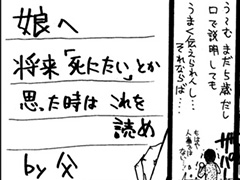 うーむ まだ5歳だし
口で説明しても
うまく伝えられんし…
それならば…
娘へ
将来「死にたい」とか
思った時は これを
読め
by 父